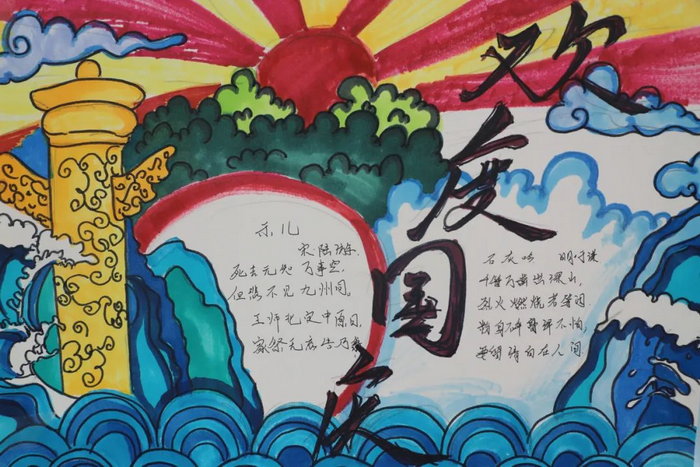 欢度国庆
示儿
宋 陆游
死去元知万事空,
但悲不见九州同。
王师北定中原日,
家祭无忘告乃翁
石灰吟 明 于谦
千锤万凿出深山
烈火焚烧若等闲
粉身碎骨浑不怕,
要留清白在人间